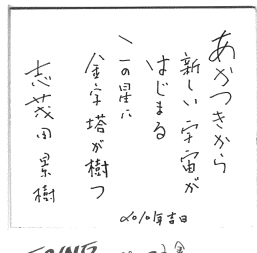 あかつきから
新しい宇宙が
はじまる
一の星に
金字塔が樹つ
志茂田景樹
2010年吉日